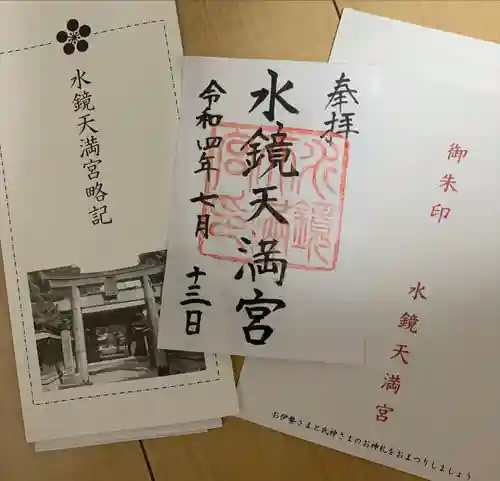 水鏡天満宮略記
奉拝
水鏡天満宮
令和四年七月
十三日
御朱印
水鏡天満宮
お伊勢さまと氏神さまのお神札をおまつりしましょう